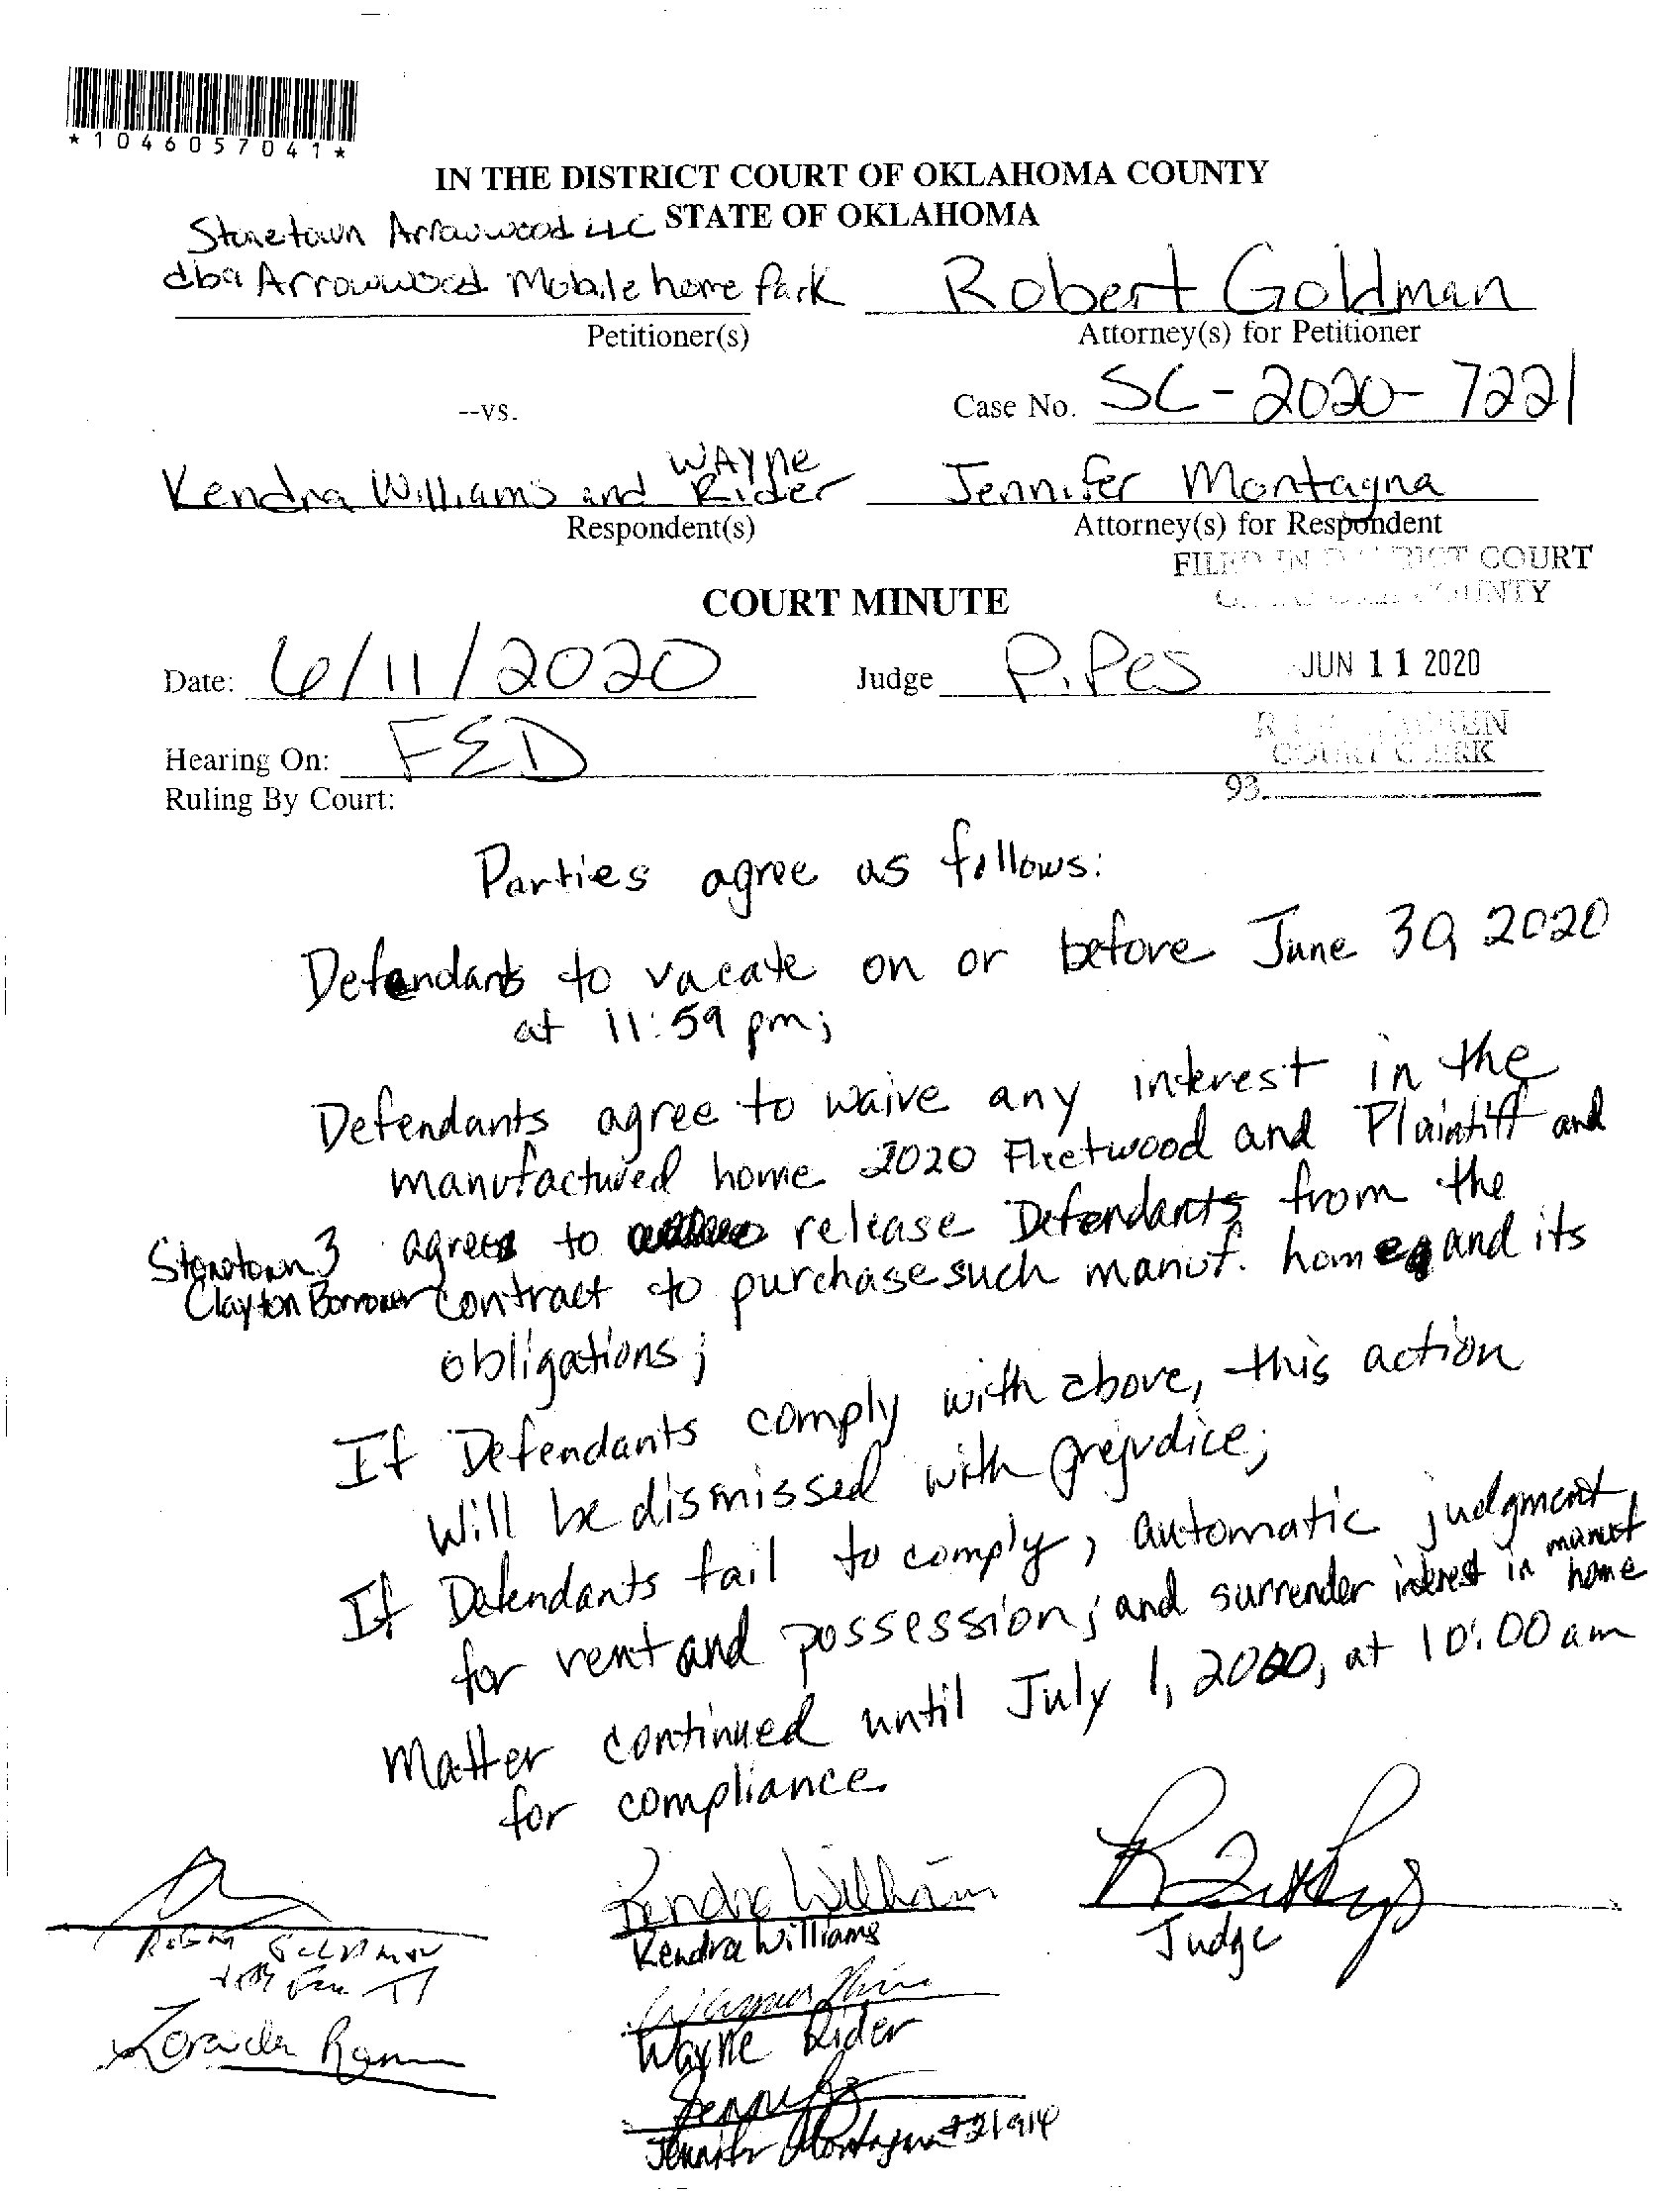 *1046057041*
IN THE DISTRICT COURT OF OKLAHOMA COUNTY
STATE OF OKLAHOMA
Stonetown Arrowwood LLC
dba Arrowwood Mobile home Park
Robert Goldman
Petitioner(s)
Attorney(s) for Petitioner
--vs.
Case No. SC-2020-7221
Kendra Williams and Wayne Rider
Jennifer Montagna
Respondent(s)
Attorney(s) for Respondent
FILED IN DISTRICT COURT
COUNTY
COURT MINUTE
Date: 6/11/2020
Judge P. Pes
JUN 11 2020
Hearing On: FED
COURT CLERK
Ruling By Court:
93
Parties agree as follows:
Defendants to vacate on or before June 30, 2020
at 11:59 pm;
Defendants agree to waive any interest in the
manufactured home 2020 Fleetwood and Plaintiff and
Stonetown 3 agrees to release Defendants from the
Clayton Borrower contract to purchase such manuf. home and its
obligations;
If Defendants comply with above, this action
will be dismissed with prejudice;
If Defendants fail to comply, automatic judgment
for rent and possession; and surrender interest in manuf home
Matter continued until July 1, 2020, at 10:00 am
for compliance.
Kendra Williams
Kendra Williams
Judge
Wayne Rider
Jennifer Montagna #21914